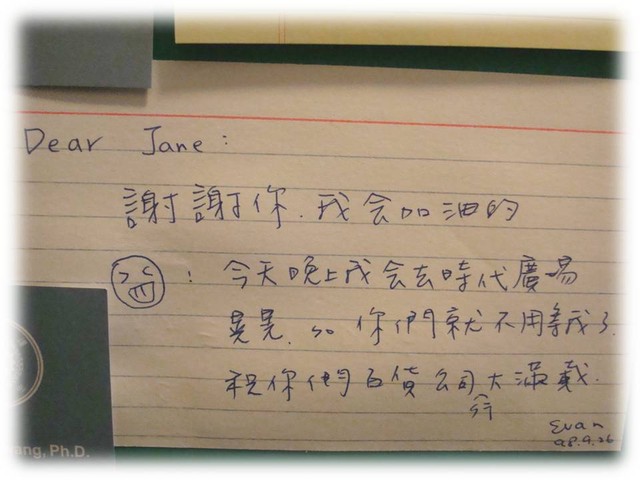 Dear Jane:
謝謝你.我会加油的
: 今天晚上我会去時代廣場
晃晃.so 你們就不用等我了.
祝你們百貨公司大滿載.
行
Evan
98.9.26
ang, Ph.D.